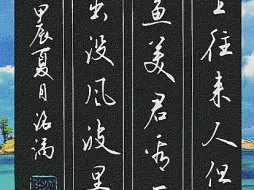 上往来人但
鱼美君看一
出没风波里
甲辰夏月